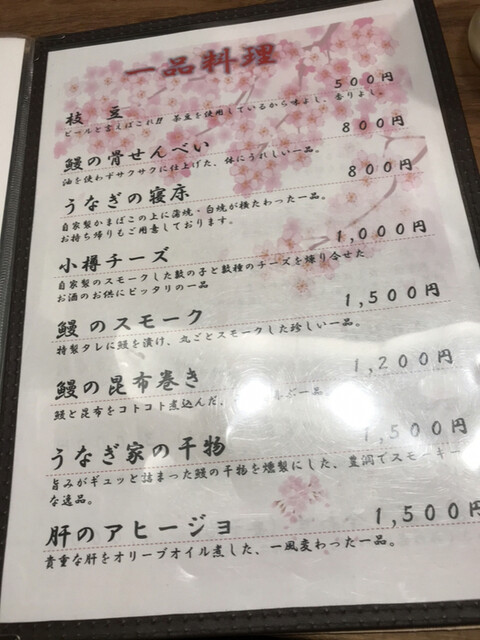 一品料理
枝 豆 500円
ビールと言えばこれ!! 茶豆を使用しているから味よし、香りよし。
鰻の骨せんべい 800円
油を使わずサクサクに仕上げた、体にうれしい一品。
うなぎの寝床 800円
自家製かまぼこの上に蒲焼・白焼が横たわった一品。
お持ち帰りもご用意しております。
小樽チーズ 1,000円
自家製のスモークした数の子と数種のチーズを練り合せた
お酒のお供にピッタリの一品
鰻のスモーク 1,500円
特製タレに鰻を漬け、丸ごとスモークした珍しい一品。
鰻の昆布巻き 1,200円
鰻と昆布をコトコト煮込んだ、 ぶ一品。
うなぎ家の干物 1,500円
旨みがギュッと詰まった鰻の干物を燻製にした、豊潤でスモーキー
な逸品。
肝のアヒージョ 1,500円
貴重な肝をオリーブオイル煮した、一風変わった一品。